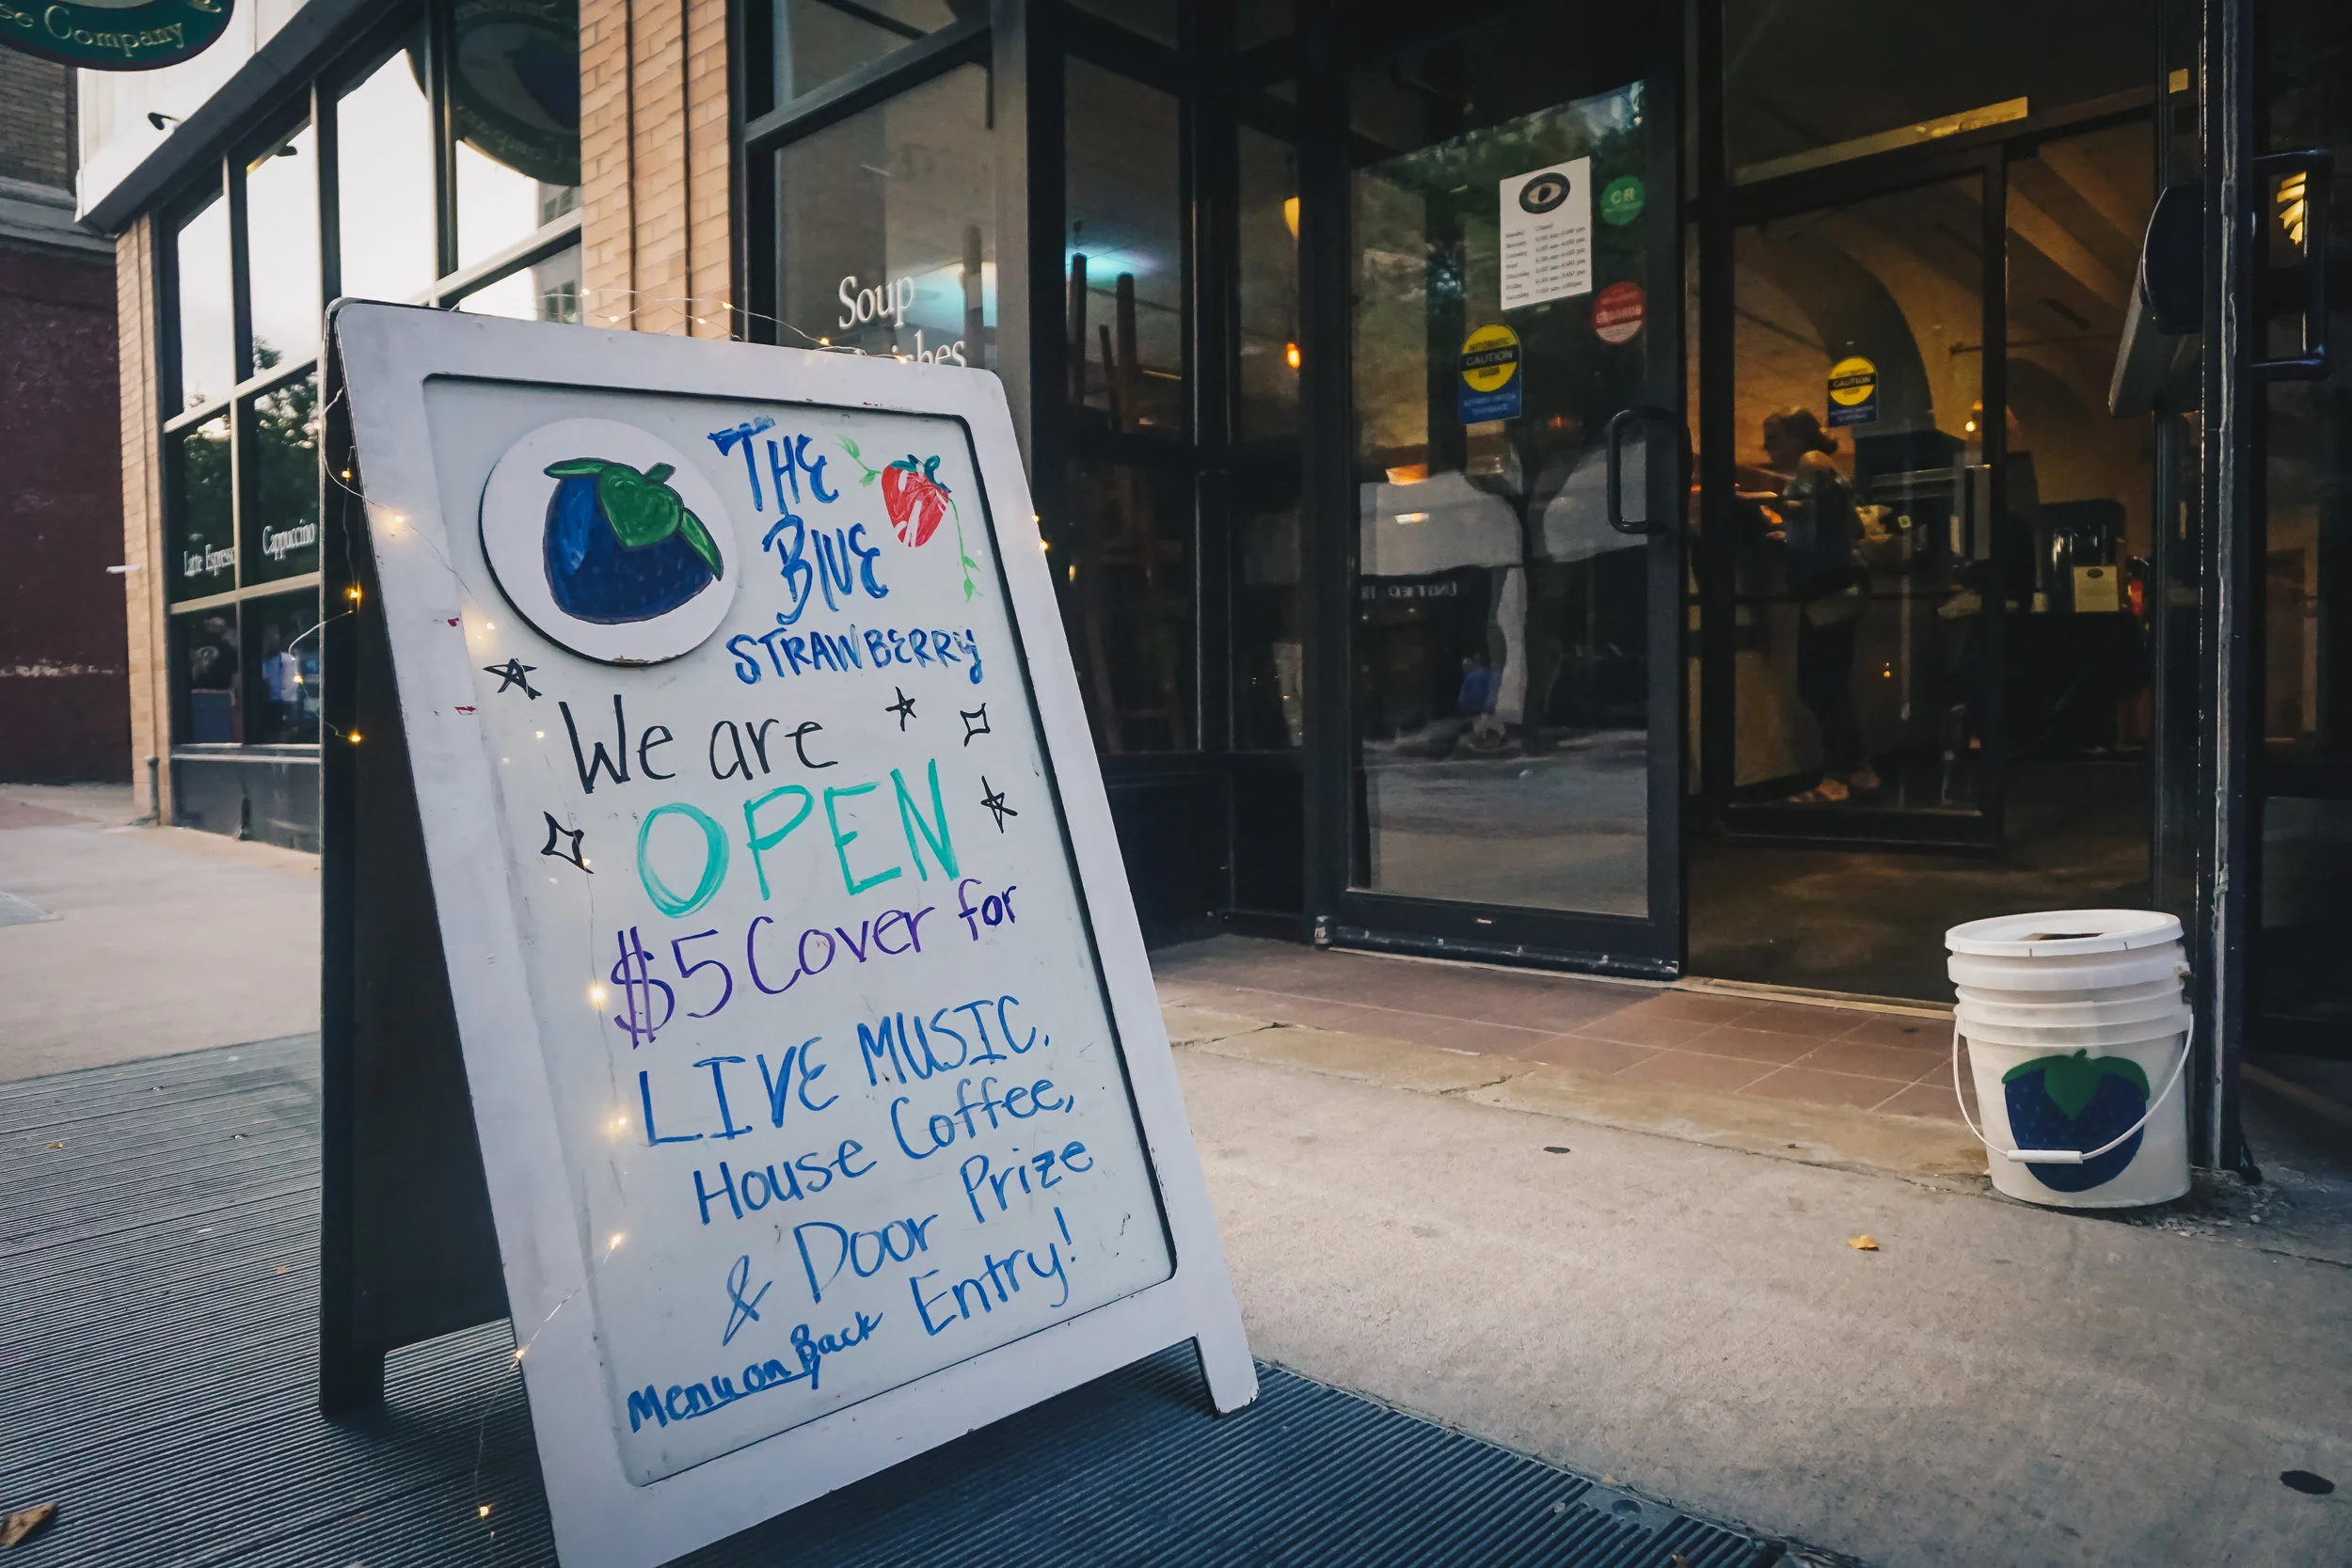 Company
Soup
Latte Espresso
Cappuccino
CR
CAUTION
CAUTION
THE
BLUE
STRAWBERRY
We are
OPEN
$5 Cover for
LIVE MUSIC,
House Coffee,
& Door Prize
Entry!
Menu on Back